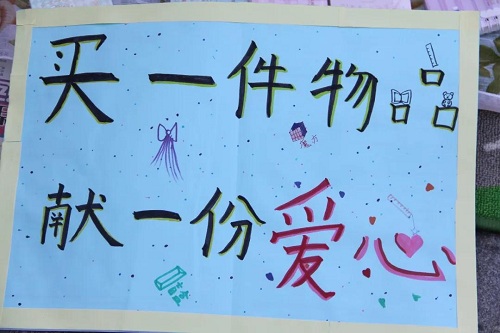 买一件物品
魔方
献一份爱心